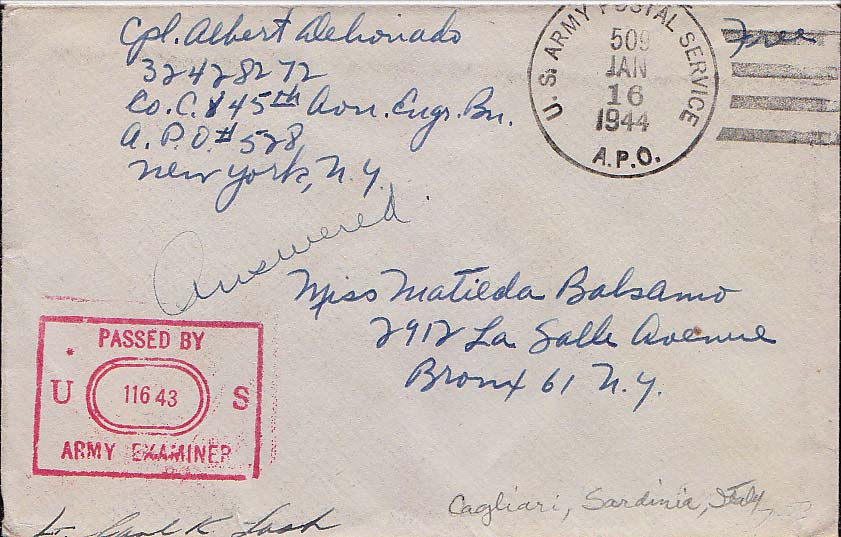 Cpl. Albert Delionado
32428272
Co. C. 845th Avn. Engr. Bn.
A.P.O. # 528
New York, N.Y.
U.S. ARMY POSTAL SERVICE
509
JAN
16
1944
A.P.O.
Free
Answered
Miss Matilda Balsamo
2912 La Salle Avenue
Bronx 61 N.Y.
PASSED BY
U 11643 S
ARMY EXAMINER
Cagliari, Sardinia, Italy
Lt. K. Lash